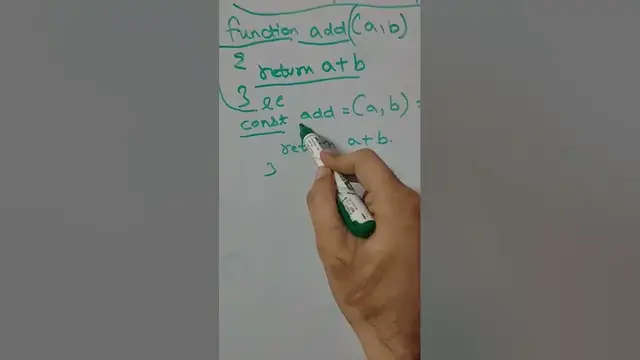 function add(a,b)
{
return a+b
}
const add = (a, b) =
a+b.
}